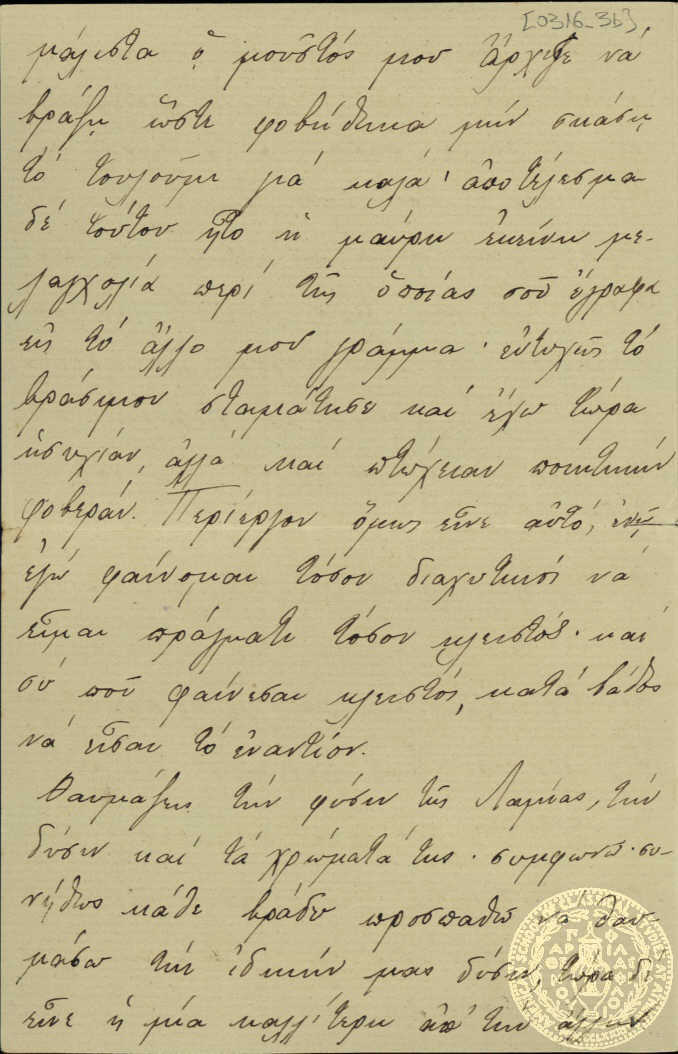 [0316-3b]
μάλιστα ὁ μοῦστός μου ἄρχιζε νά
βράζῃ ὥστε φοβήθηκα μήν σκάσῃ
τό τουλοῦμι γιά καλά· ἀποτέλεσμα
δέ τούτου ἦτο ἡ μαύρη ἐκείνη με-
λαγχολία περί τῆς ὁποίας σοῦ ἔγραφα
εἰς τό ἄλλο μου γράμμα· εὐτυχῶς τό
βράσιμον σταμάτησε καί ἔχω τώρα
ἡσυχίαν, ἀλλά καί πτώχειαν ποιητικήν
φοβεράν. Περίεργον ὅμως εἶνε αὐτό,
ἐγώ φαίνομαι τόσον διαχυτικός νά
εἶμαι πράγματι τόσον κλειστός· καί
σύ ποῦ φαίνεσαι κλειστός, κατά βάθος
νά εἶσαι τό ἐναντίον.
Θαυμάζεις τήν φύσιν τῆς Λαμίας, τήν
δύσιν καί τά χρώματά της· συμφωνῶ· συ-
νήθως κάθε βράδυ προσπαθῶ νά θαυ-
μάσω τήν ἰδικήν μας δύσιν, τώρα δέ
εἶνε ἡ μία καλλίτερη ἀπ' τήν ἄλλην